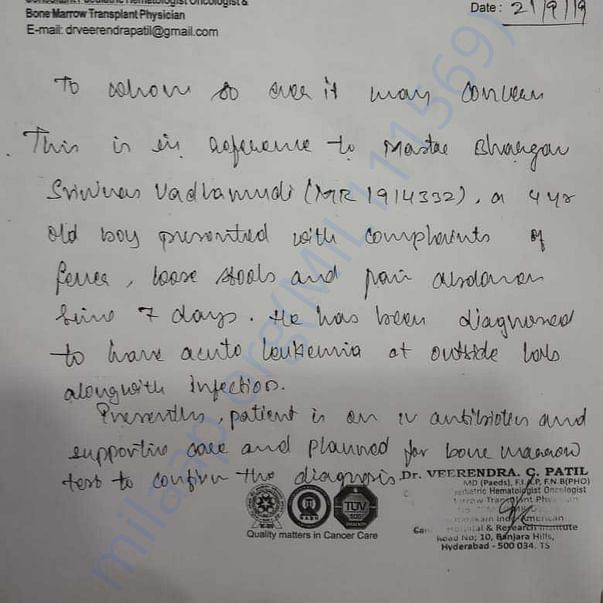 Consultant Pediatric Hematologist Oncologist &
Bone Marrow Transplant Physician
E-mail: drveerendrapatil@gmail.com
Date: 21/9/19
To whom so ever it may concern
This is in reference to Master Bhargav
Srinivas Vadlamudi (MR 1914332), a 4 yr
old boy presented with complaints of
fever, loose stools and pain abdomen
since 7 days. He has been diagnosed
to have acute leukemia at outside labs
alongwith infection.
Presently, patient is on iv antibiotics and
supportive care and planned for bone marrow
test to confirm the diagnosis.
Dr. VEERENDRA. C. PATIL
MD (Paeds), F.I.A.P, F.N.B(PHO)
Pediatric Hematologist Oncologist
Marrow Transplant
Indo American
Hospital & Research Institute
Road No; 10, Banjara Hills,
Hyderabad - 500 034. TS
NABH
TUV
Quality matters in Cancer Care
milaap.org(MIL111569)